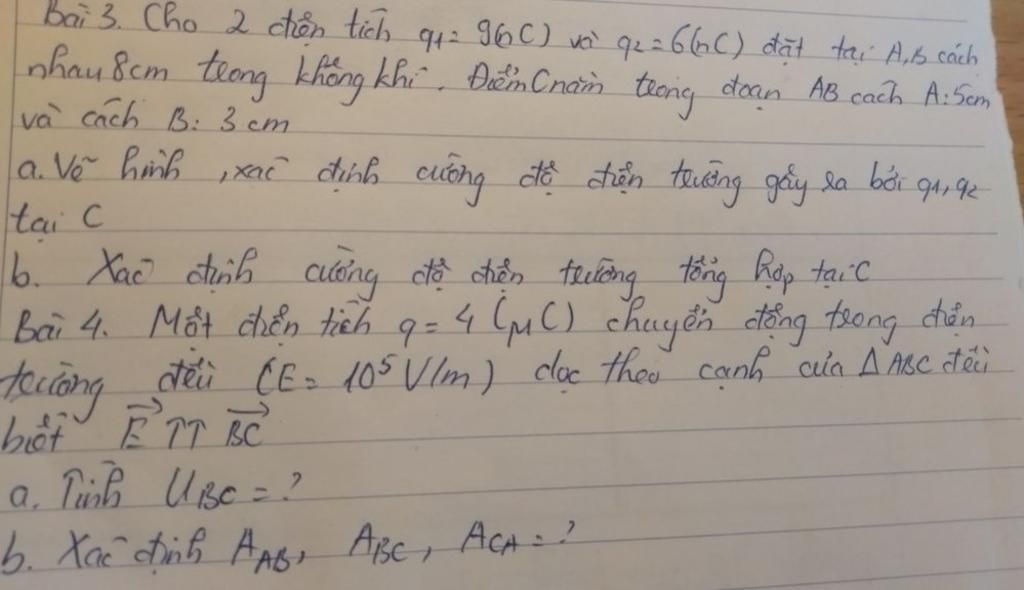 Bài 3. Cho 2 điện tích q1 = 9(nC) và q2 = 6(nC) đặt tại A,B cách
nhau 8cm trong không khí. Điểm C nằm trong đoạn AB cách A: 5cm
và cách B: 3 cm
a. Vẽ hình, xác định cường độ điện trường gây ra bởi q1, q2
tại C
b. Xác định cường độ điện trường tổng hợp tại C
Bài 4. Một điện tích q = 4 (μC) chuyển động trong điện
trường đều (E = 10⁵ V/m) dọc theo cạnh của Δ ABC đều
biết E⃗ ↑↑ BC⃗
a. Tính UBC = ?
b. Xác định AAB, ABC, ACA = ?